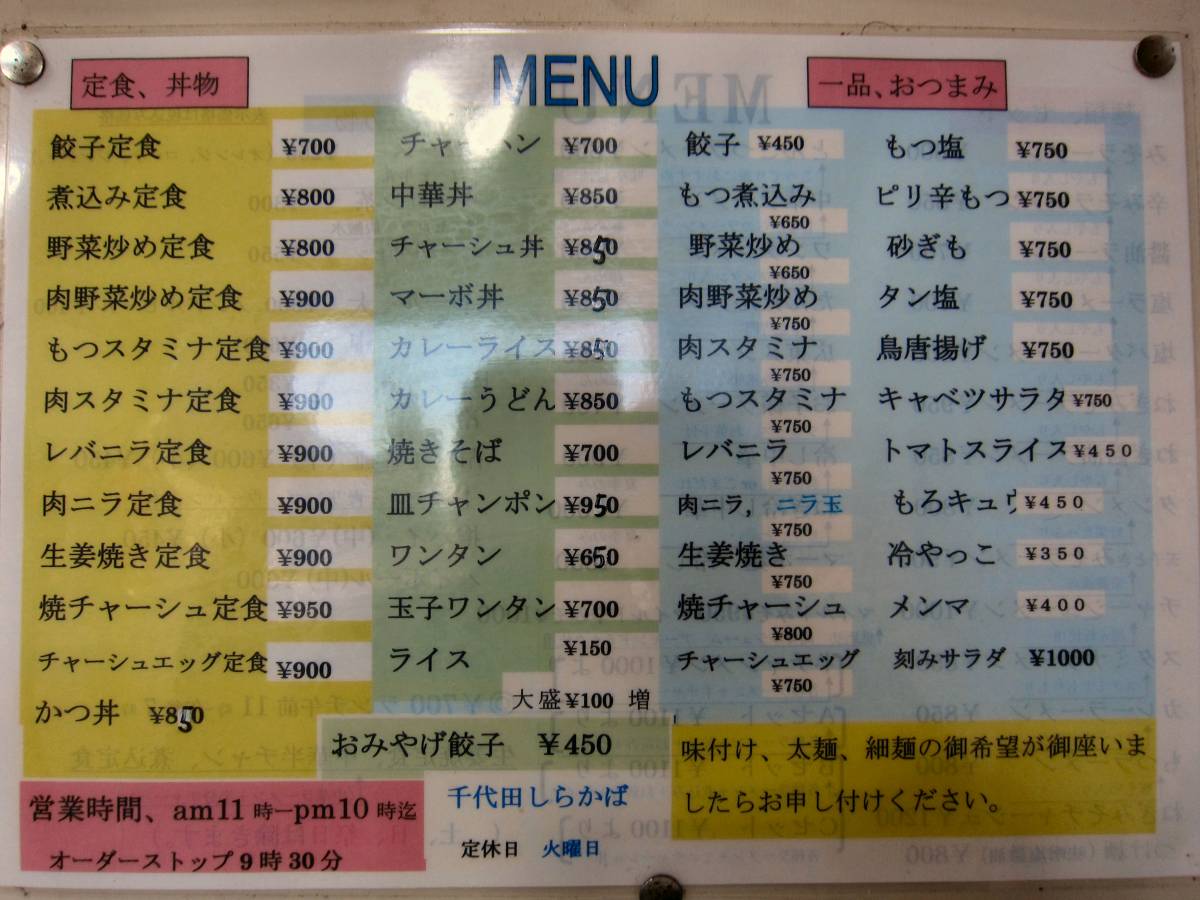 MENU
定食、丼物
餃子定食 ¥700
煮込み定食 ¥800
野菜炒め定食 ¥800
肉野菜炒め定食 ¥900
もつスタミナ定食 ¥900
肉スタミナ定食 ¥900
レバニラ定食 ¥900
肉ニラ定食 ¥900
生姜焼き定食 ¥900
焼チャーシュ定食 ¥950
チャーシュエッグ定食 ¥900
かつ丼 ¥850
チャーハン ¥700
中華丼 ¥850
チャーシュ丼 ¥850
マーボ丼 ¥850
カレーライス ¥850
カレーうどん ¥850
焼きそば ¥700
皿チャンポン ¥950
ワンタン ¥650
玉子ワンタン ¥700
ライス ¥150
大盛¥100 増
おみやげ餃子 ¥450
一品、おつまみ
餃子 ¥450
もつ煮込み ¥650
野菜炒め ¥650
肉野菜炒め ¥750
肉スタミナ ¥750
もつスタミナ ¥750
レバニラ ¥750
肉ニラ, ニラ玉 ¥750
生姜焼き ¥750
焼チャーシュ ¥800
チャーシュエッグ ¥750
もつ塩 ¥750
ピリ辛もつ ¥750
砂ぎも ¥750
タン塩 ¥750
鳥唐揚げ ¥750
キャベツサラタ ¥750
トマトスライス ¥450
もろキュウ ¥450
冷やっこ ¥350
メンマ ¥400
刻みサラダ ¥1000
味付け、太麺、細麺の御希望が御座いま
したらお申し付けください。
営業時間、am11時―pm10時迄
オーダーストップ9時30分
千代田しらかば
定休日 火曜日